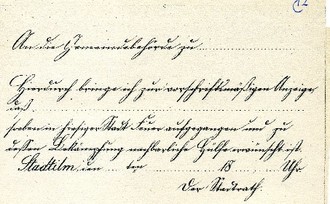 12
An die Gemeindebehörde zu
Hierdurch bringe ich zur vorschriftsmäßigen Anzeige
daß
soeben in hiesiger Stadt Feuer aufgegangen und zu
dessen Bekämpfung nachbarliche Hülfe erwünscht ist.
Stadtilm den ten 18 Uhr
Der Stadtrath.